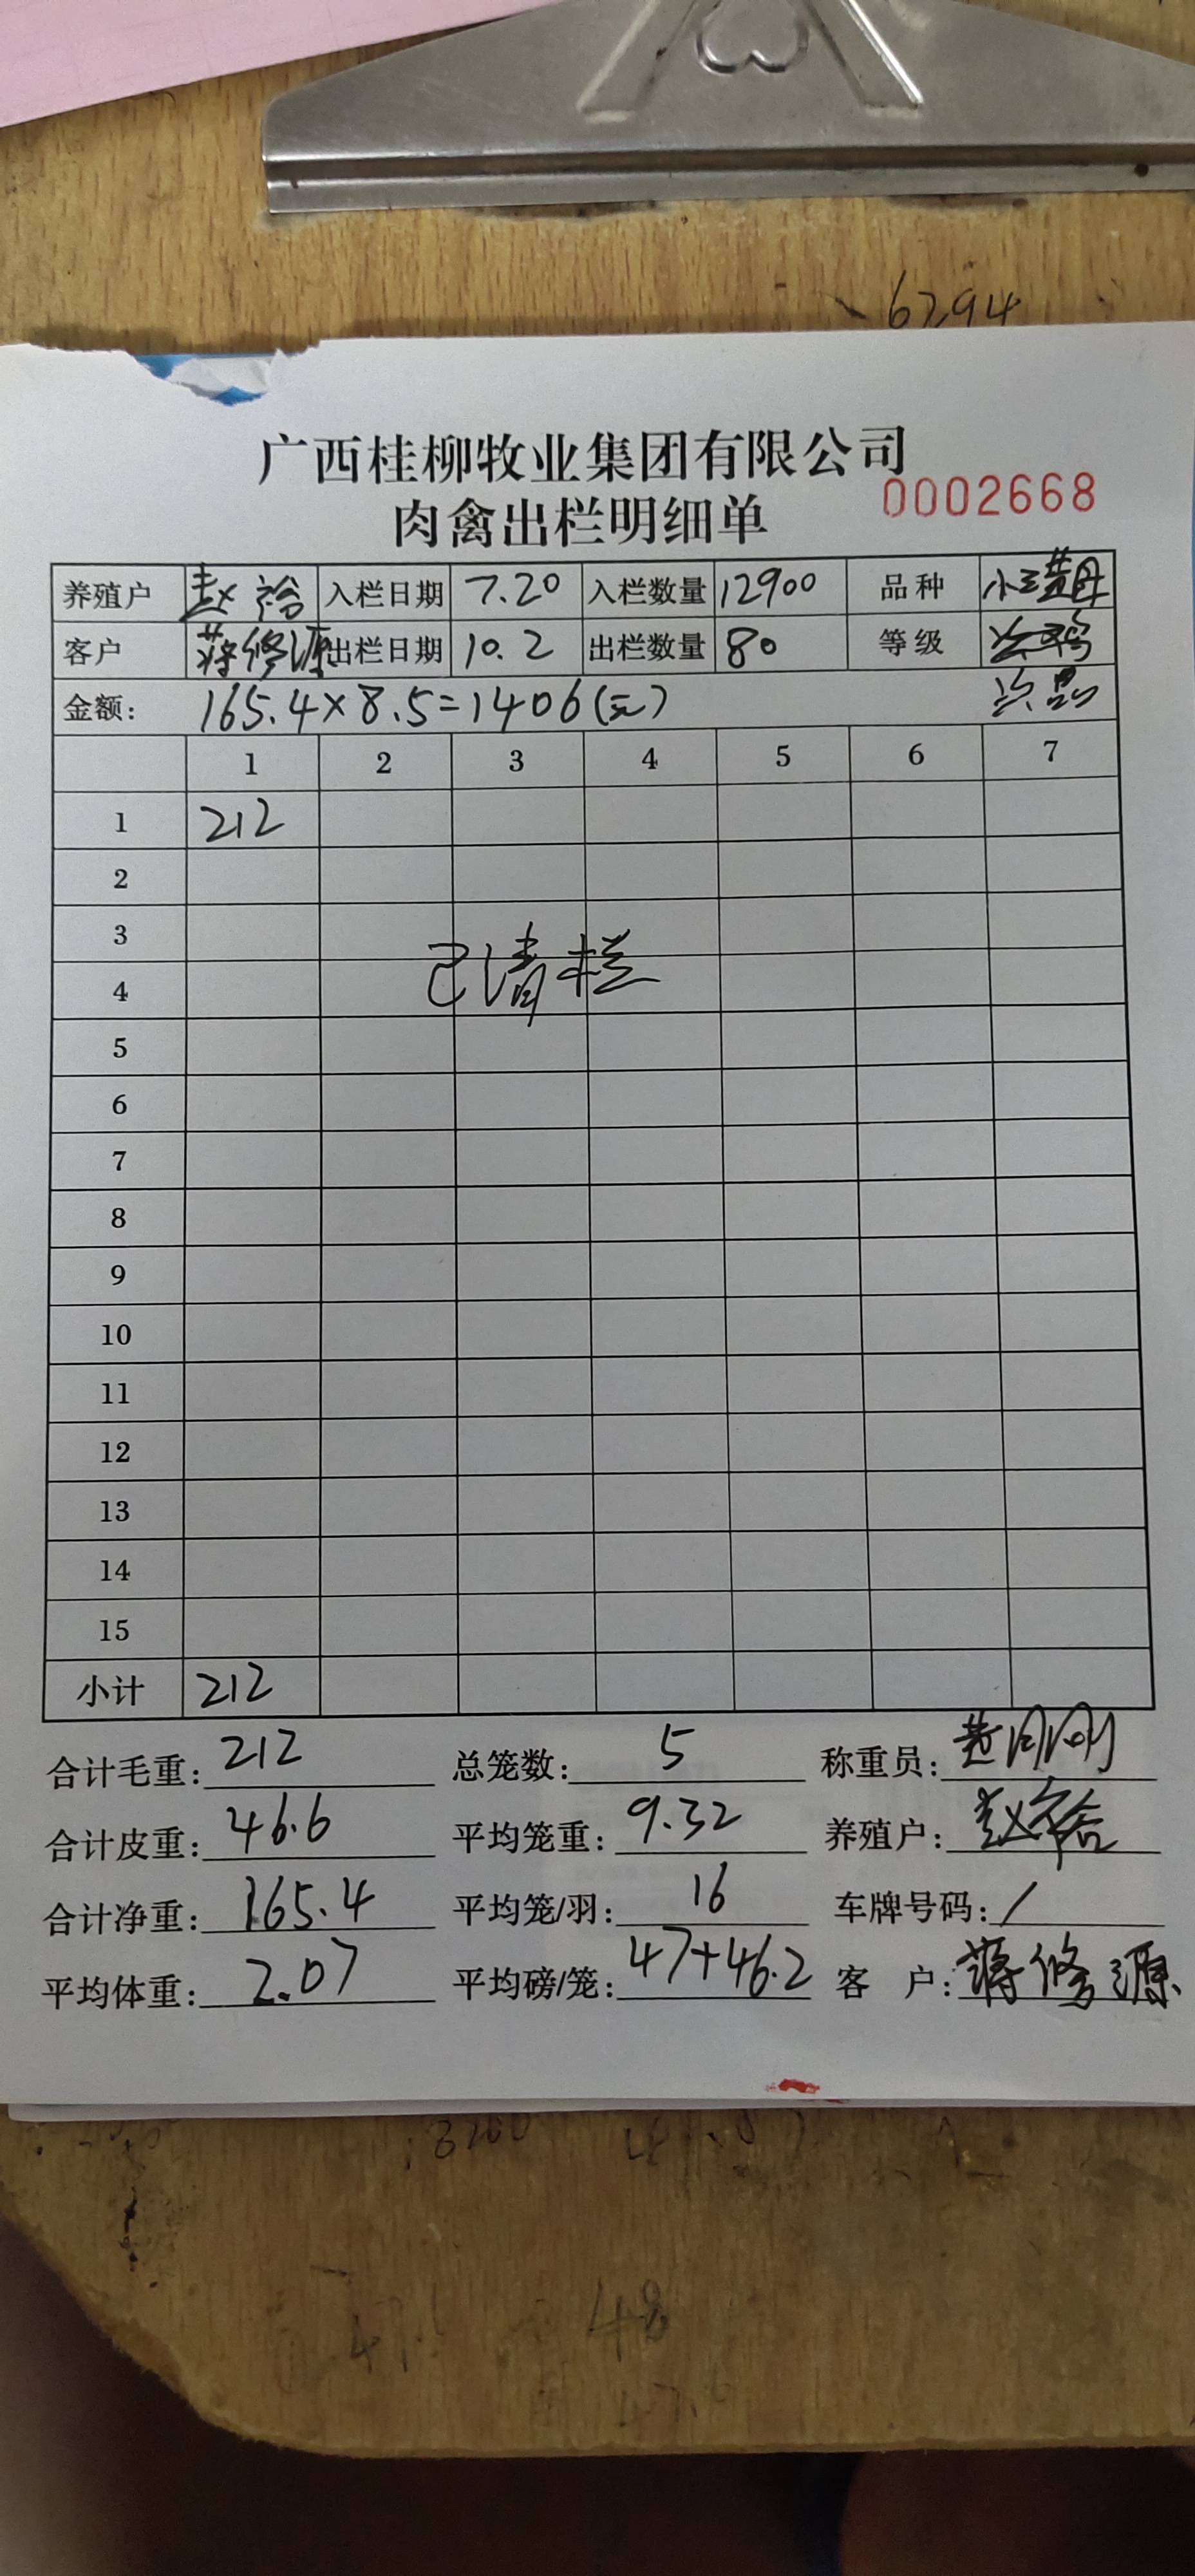 6294
广西桂柳牧业集团有限公司
肉禽出栏明细单 0002668
养殖户 赵裕 入栏日期 7.20 入栏数量 12900 品种 小三黄母
客户 蒋修源 出栏日期 10.2 出栏数量 80 等级
金额: 165.4×8.5=1406(元) 次品
1 2 3 4 5 6 7
1 212
2
3
已清栏
4
5
6
7
8
9
10
11
12
13
14
15
小计 212
合计毛重: 212 总笼数: 5 称重员:
合计皮重: 46.6 平均笼重: 9.32 养殖户: 赵裕
合计净重: 165.4 平均笼/羽: 16 车牌号码: /
平均体重: 2.07 平均磅/笼: 47+46.2 客 户: 蒋修源
48